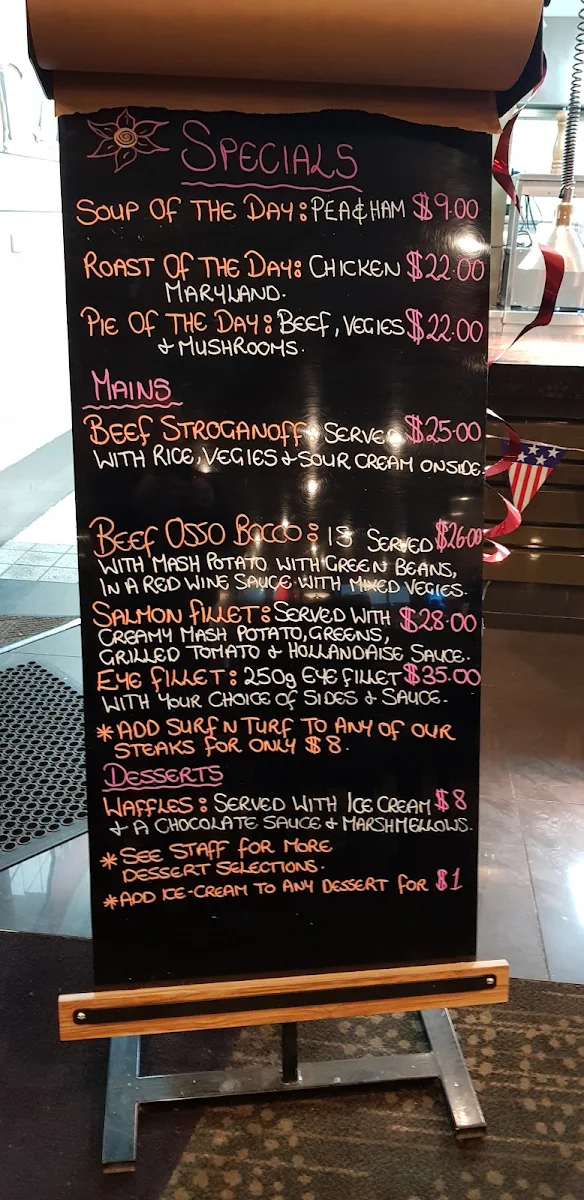 SPECIALS
SOUP OF THE DAY: PEA & HAM $9.00
ROAST OF THE DAY: CHICKEN $22.00
MARYLAND.
PIE OF THE DAY: BEEF, VEGIES $22.00
& MUSHROOMS.
MAINS
BEEF STROGANOFF: SERVED $25.00
WITH RICE, VEGIES & SOUR CREAM ON SIDE.
BEEF OSSO BOCCO: IS SERVED $26.00
WITH MASH POTATO WITH GREEN BEANS,
IN A RED WINE SAUCE WITH MIXED VEGIES.
SALMON FILLET: SERVED WITH $28.00
CREAMY MASH POTATO, GREENS,
GRILLED TOMATO & HOLLANDAISE SAUCE.
EYE FILLET: 250g EYE FILLET $35.00
WITH YOUR CHOICE OF SIDES & SAUCE.
* ADD SURF N TURF TO ANY OF OUR
STEAKS FOR ONLY $8.
DESSERTS
WAFFLES: SERVED WITH ICE CREAM $8
& A CHOCOLATE SAUCE & MARSHMELLOWS.
* SEE STAFF FOR MORE
DESSERT SELECTIONS.
* ADD ICE-CREAM TO ANY DESSERT FOR $1